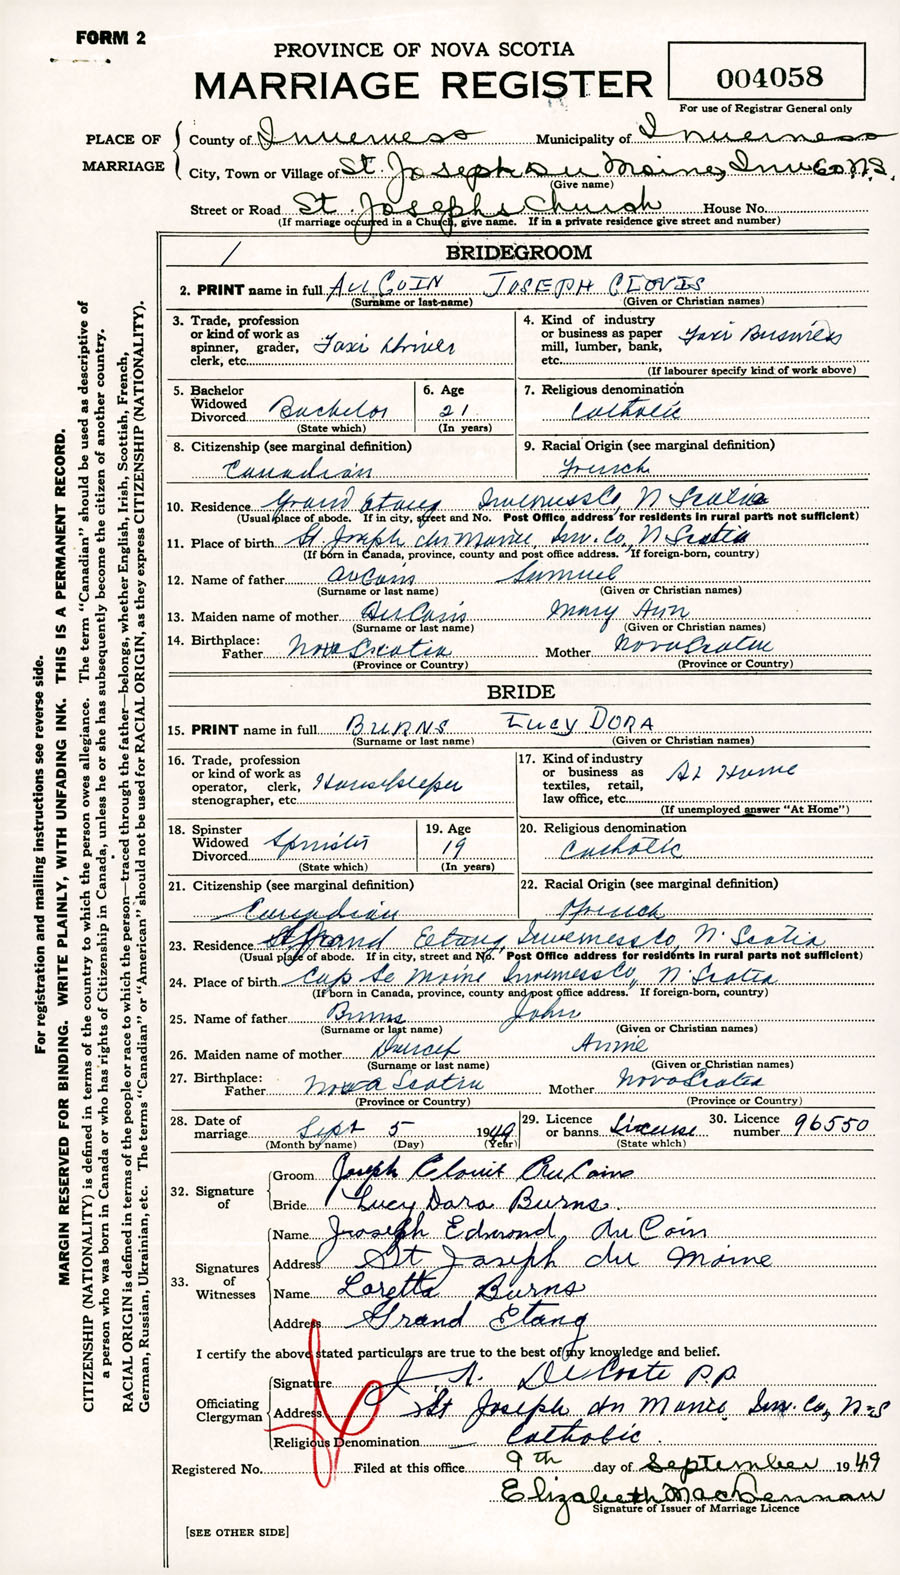 FORM 2
PROVINCE OF NOVA SCOTIA
MARRIAGE REGISTER
004058
For use of Registrar General only
PLACE OF MARRIAGE
County of Inverness Municipality of Inverness
City, Town or Village of St. Joseph du Moine, Inv. Co. N.S.
(Give name)
Street or Road St. Josephs Church House No.
(If marriage occurred in a Church, give name. If in a private residence give street and number)
1
BRIDEGROOM
2. PRINT name in full AuCoin JOSEPH CLOVIS
(Surname or last name) (Given or Christian names)
3. Trade, profession or kind of work as spinner, grader, clerk, etc. Taxi Driver
4. Kind of industry or business as paper mill, lumber, bank, etc. Taxi Business
(If labourer specify kind of work above)
5. Bachelor Widowed Divorced Bachelor
(State which)
6. Age 21
(In years)
7. Religious denomination Catholic
8. Citizenship (see marginal definition) Canadian
9. Racial Origin (see marginal definition) French
10. Residence Grand Etang Inverness Co, N Scotia
(Usual place of abode. If in city, street and No. Post Office address for residents in rural parts not sufficient)
11. Place of birth St Joseph du Moine, Inv. Co, N Scotia
(If born in Canada, province, county and post office address. If foreign-born, country)
12. Name of father AuCoin Samuel
(Surname or last name) (Given or Christian names)
13. Maiden name of mother AuCoin Mary Ann
(Surname or last name) (Given or Christian names)
14. Birthplace: Father Nova Scotia Mother Nova Scotia
(Province or Country) (Province or Country)
BRIDE
15. PRINT name in full BURNS LUCY DORA
(Surname or last name) (Given or Christian names)
16. Trade, profession or kind of work as operator, clerk, stenographer, etc. Housekeeper
17. Kind of industry or business as textiles, retail, law office, etc. At Home
(If unemployed answer "At Home")
18. Spinster Widowed Divorced Spinster
(State which)
19. Age 19
(In years)
20. Religious denomination Catholic
21. Citizenship (see marginal definition) Canadian
22. Racial Origin (see marginal definition) French
23. Residence Grand Etang, Inverness Co, N. Scotia
(Usual place of abode. If in city, street and No. Post Office address for residents in rural parts not sufficient)
24. Place of birth Cap Le Moine Inverness Co, N. Scotia
(If born in Canada, province, county and post office address. If foreign-born, country)
25. Name of father Burns John
(Surname or last name) (Given or Christian names)
26. Maiden name of mother Annie
(Surname or last name) (Given or Christian names)
27. Birthplace: Father Nova Scotia Mother Nova Scotia
(Province or Country) (Province or Country)
28. Date of marriage Sept 5 1949
(Month by name) (Day) (Year)
29. Licence or banns License
(State which)
30. Licence number 96550
32. Signature of
Groom Joseph AuCoin
Bride Lucy Dora Burns.
33. Signatures of Witnesses
Name Joseph Edmond AuCoin
Address St Joseph du Moine
Name Loretta Burns
Address Grand Etang
I certify the above stated particulars are true to the best of my knowledge and belief.
Officiating Clergyman
Signature DeCoste P.P.
Address St Joseph du Moine, Inv. Co, N.S
Religious Denomination Catholic.
Registered No. Filed at this office 9th day of September 1949
Elizabeth MacLennan
Signature of Issuer of Marriage Licence
[SEE OTHER SIDE]
For registration and mailing instructions see reverse side.
MARGIN RESERVED FOR BINDING. WRITE PLAINLY, WITH UNFADING INK. THIS IS A PERMANENT RECORD.
CITIZENSHIP (NATIONALITY) is defined in terms of the country to which the person owes allegiance. The term "Canadian" should be used as descriptive of
a person who was born in Canada or who has rights of Citizenship in Canada, unless he or she has subsequently become the citizen of another country.
RACIAL ORIGIN is defined in terms of the people or race to which the person—traced through the father—belongs, whether English, Irish, Scottish, French,
German, Russian, Ukrainian, etc. The terms "Canadian" or "American" should not be used for RACIAL ORIGIN, as they express CITIZENSHIP (NATIONALITY).